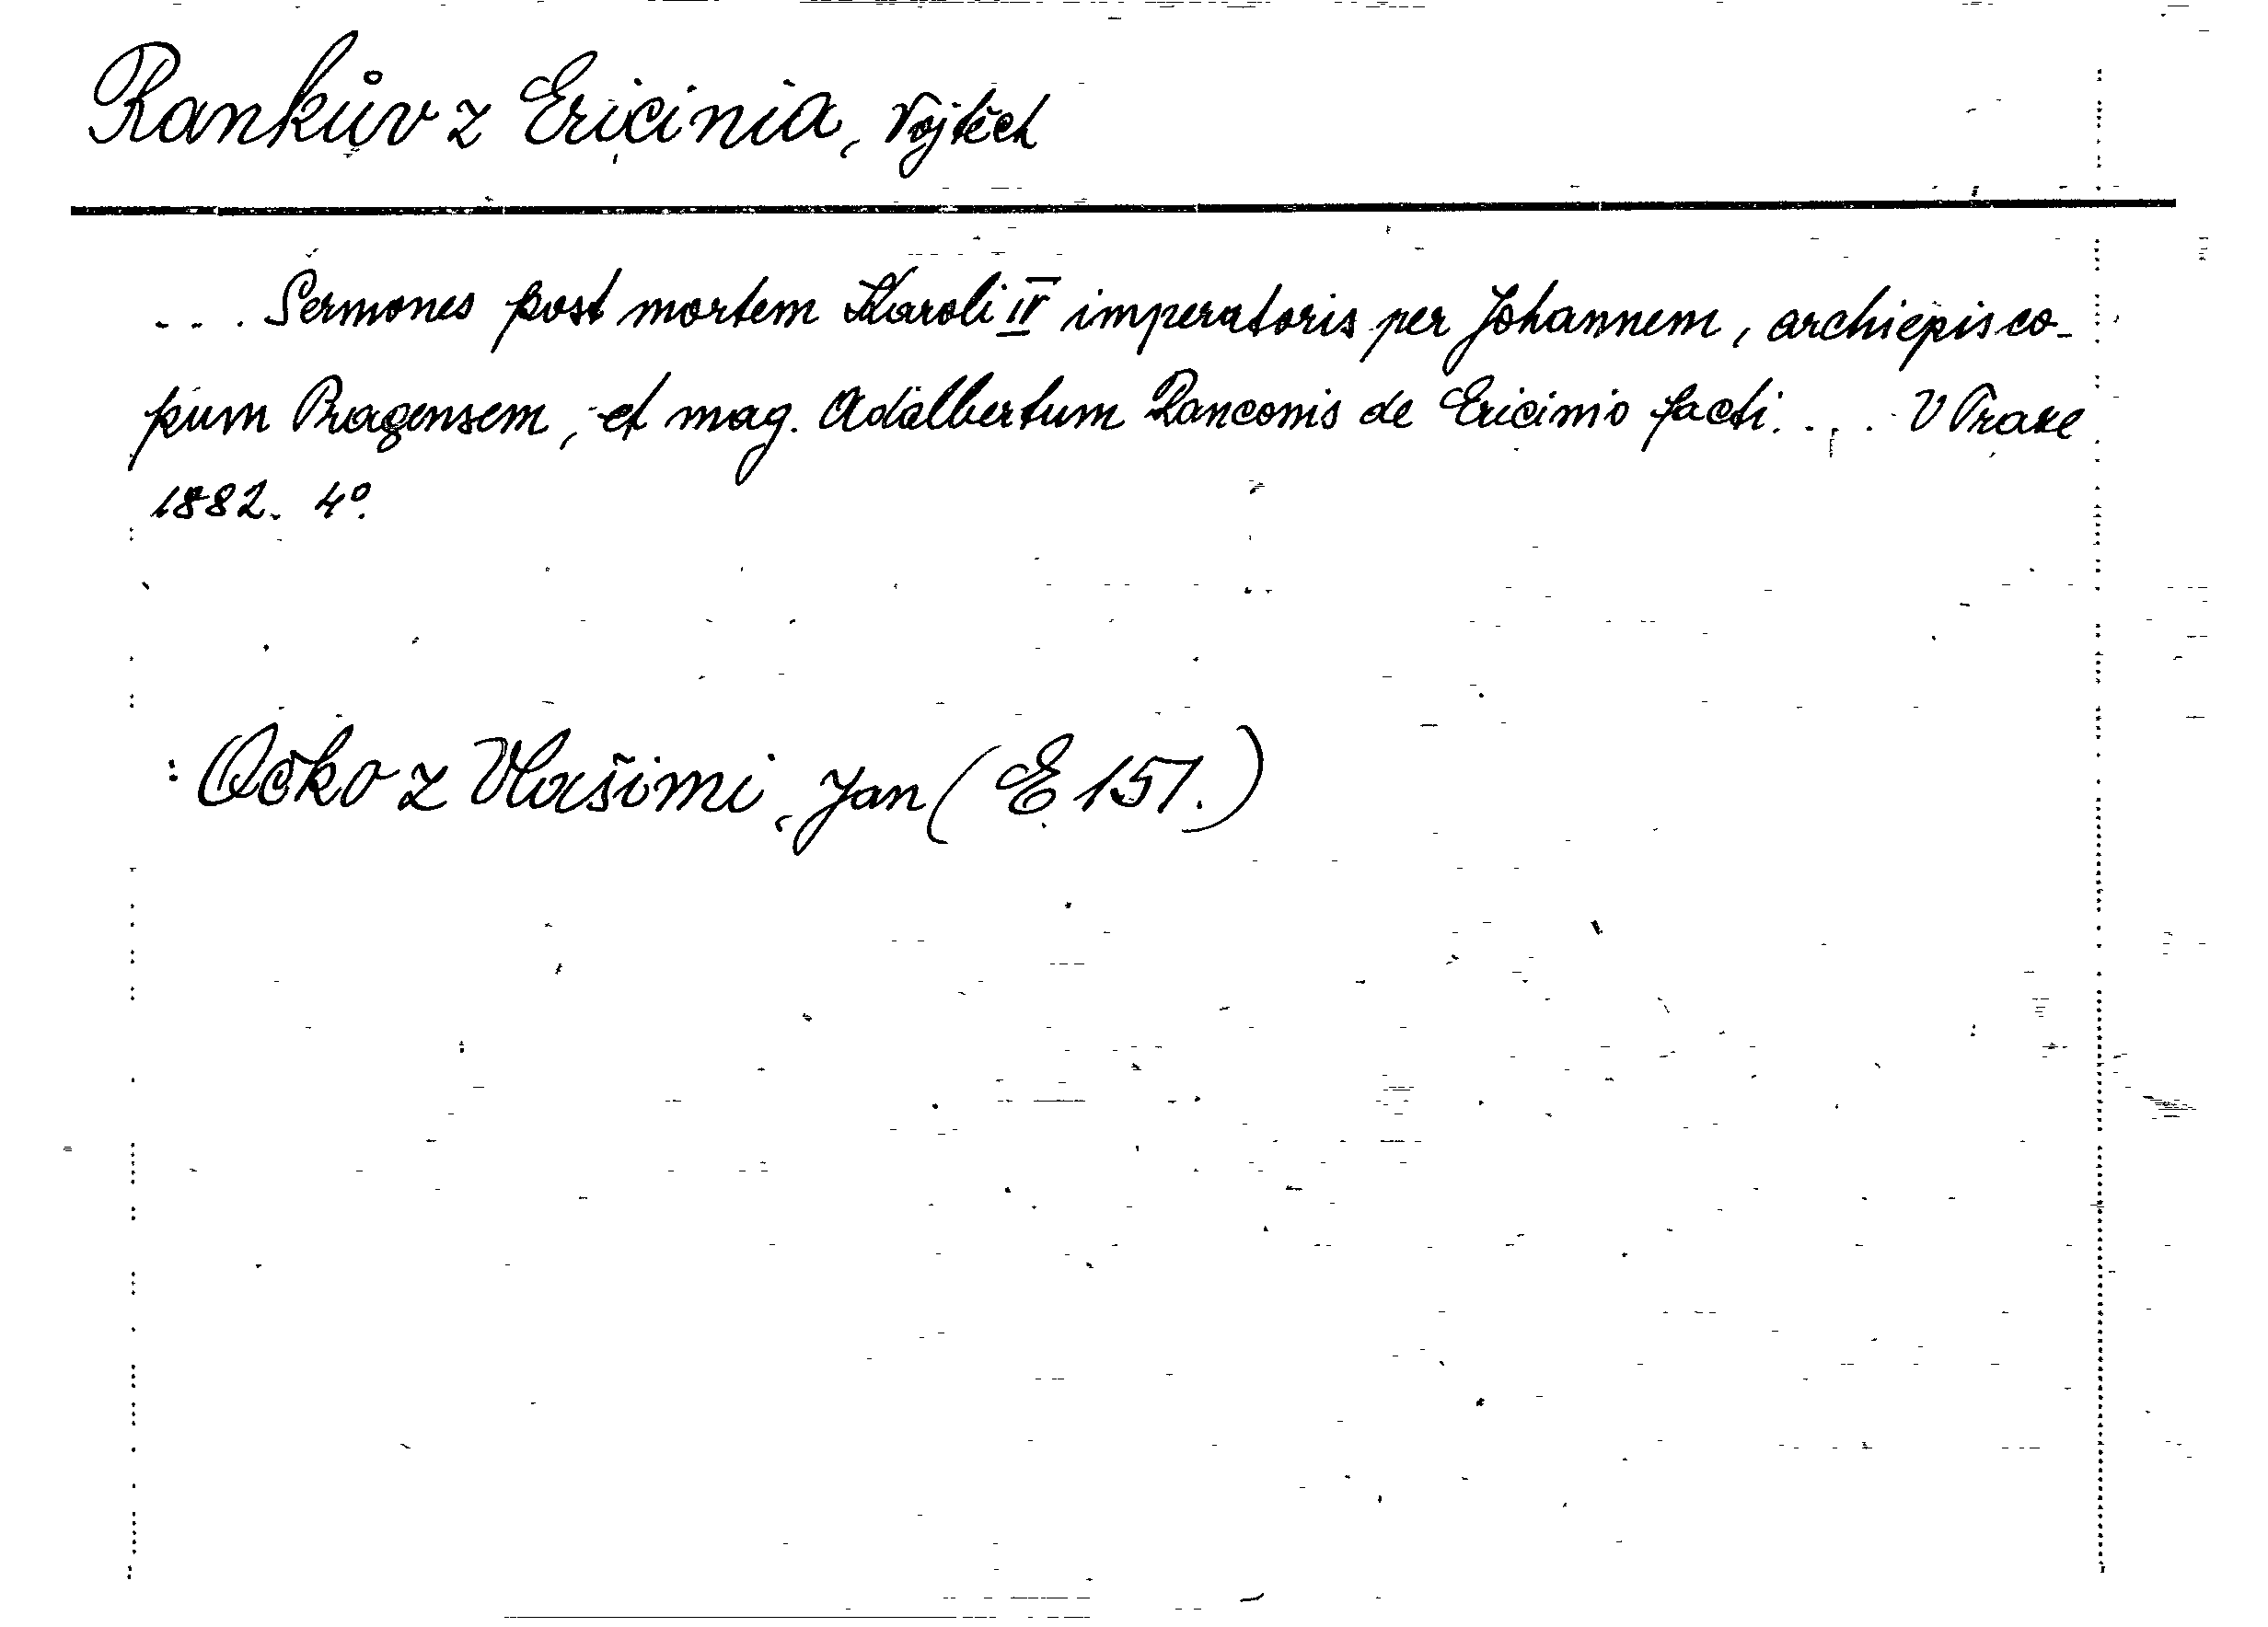 Rankův z Ericinia, Vojtěch
... Sermones post mortem Karoli IV imperatoris per Johannem, archiepisco-
pum Pragensem, et mag. Adalbertum Ranconis de Ericinio facti.... V Praze
1882. 4°.
: Očko z Vlašimi, Jan (E 151.)